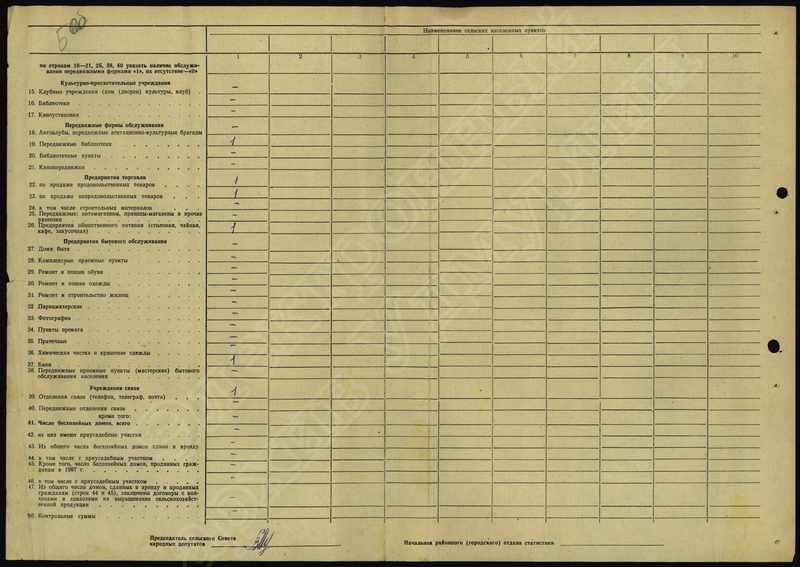 Наименование сельских населенных пунктов
1 2 3 4 5 6 7 8 9 10
по строкам 18—21, 25, 38, 40 указать наличие обслужи-
вания передвижными формами «1», их отсутствие—«0»
Культурно-просветительные учреждения
15. Клубные учреждения (дом (дворец) культуры, клуб) —
16. Библиотеки —
17. Киноустановки —
Передвижные формы обслуживания
18. Автоклубы, передвижные агитационно-культурные бригады —
19. Передвижные библиотеки 1
20. Библиотечные пункты —
21. Кинопередвижки —
Предприятия торговли
22. по продаже продовольственных товаров 1
23. по продаже непродовольственных товаров 1
24. в том числе строительных материалов —
25. Передвижные: автомагазины, прицепы-магазины и прочая
развозка —
26. Предприятия общественного питания (столовая, чайная,
кафе, закусочная) 1
Предприятия бытового обслуживания
27. Дома быта —
28. Комплексные приемные пункты —
29. Ремонт и пошив обуви —
30. Ремонт и пошив одежды —
31. Ремонт и строительство жилищ —
32. Парикмахерские —
33. Фотографии —
34. Пункты проката —
35. Прачечные —
36. Химическая чистка и крашение одежды —
37. Бани 1
38. Передвижные приемные пункты (мастерские) бытового
обслуживания населения —
Учреждения связи
39. Отделения связи (телефон, телеграф, почта) 1
40. Передвижные отделения связи —
кроме того:
41. Число бесхозяйных домов, всего —
42. из них имеют приусадебные участки —
43. Из общего числа бесхозяйных домов сдано в аренду —
44. в том числе с приусадебным участком —
45. Кроме того, число бесхозяйных домов, проданных граж-
данам в 1987 г. —
46. в том числе с приусадебным участком —
47. Из общего числа домов, сданных в аренду и проданных
гражданам (строк 44 и 45), заключены договоры с кол-
хозами и совхозами на выращивание сельскохозяйст-
венной продукции —
98. Контрольные суммы
Председатель сельского Совета
народных депутатов
Начальник районного (городского) отдела статистики